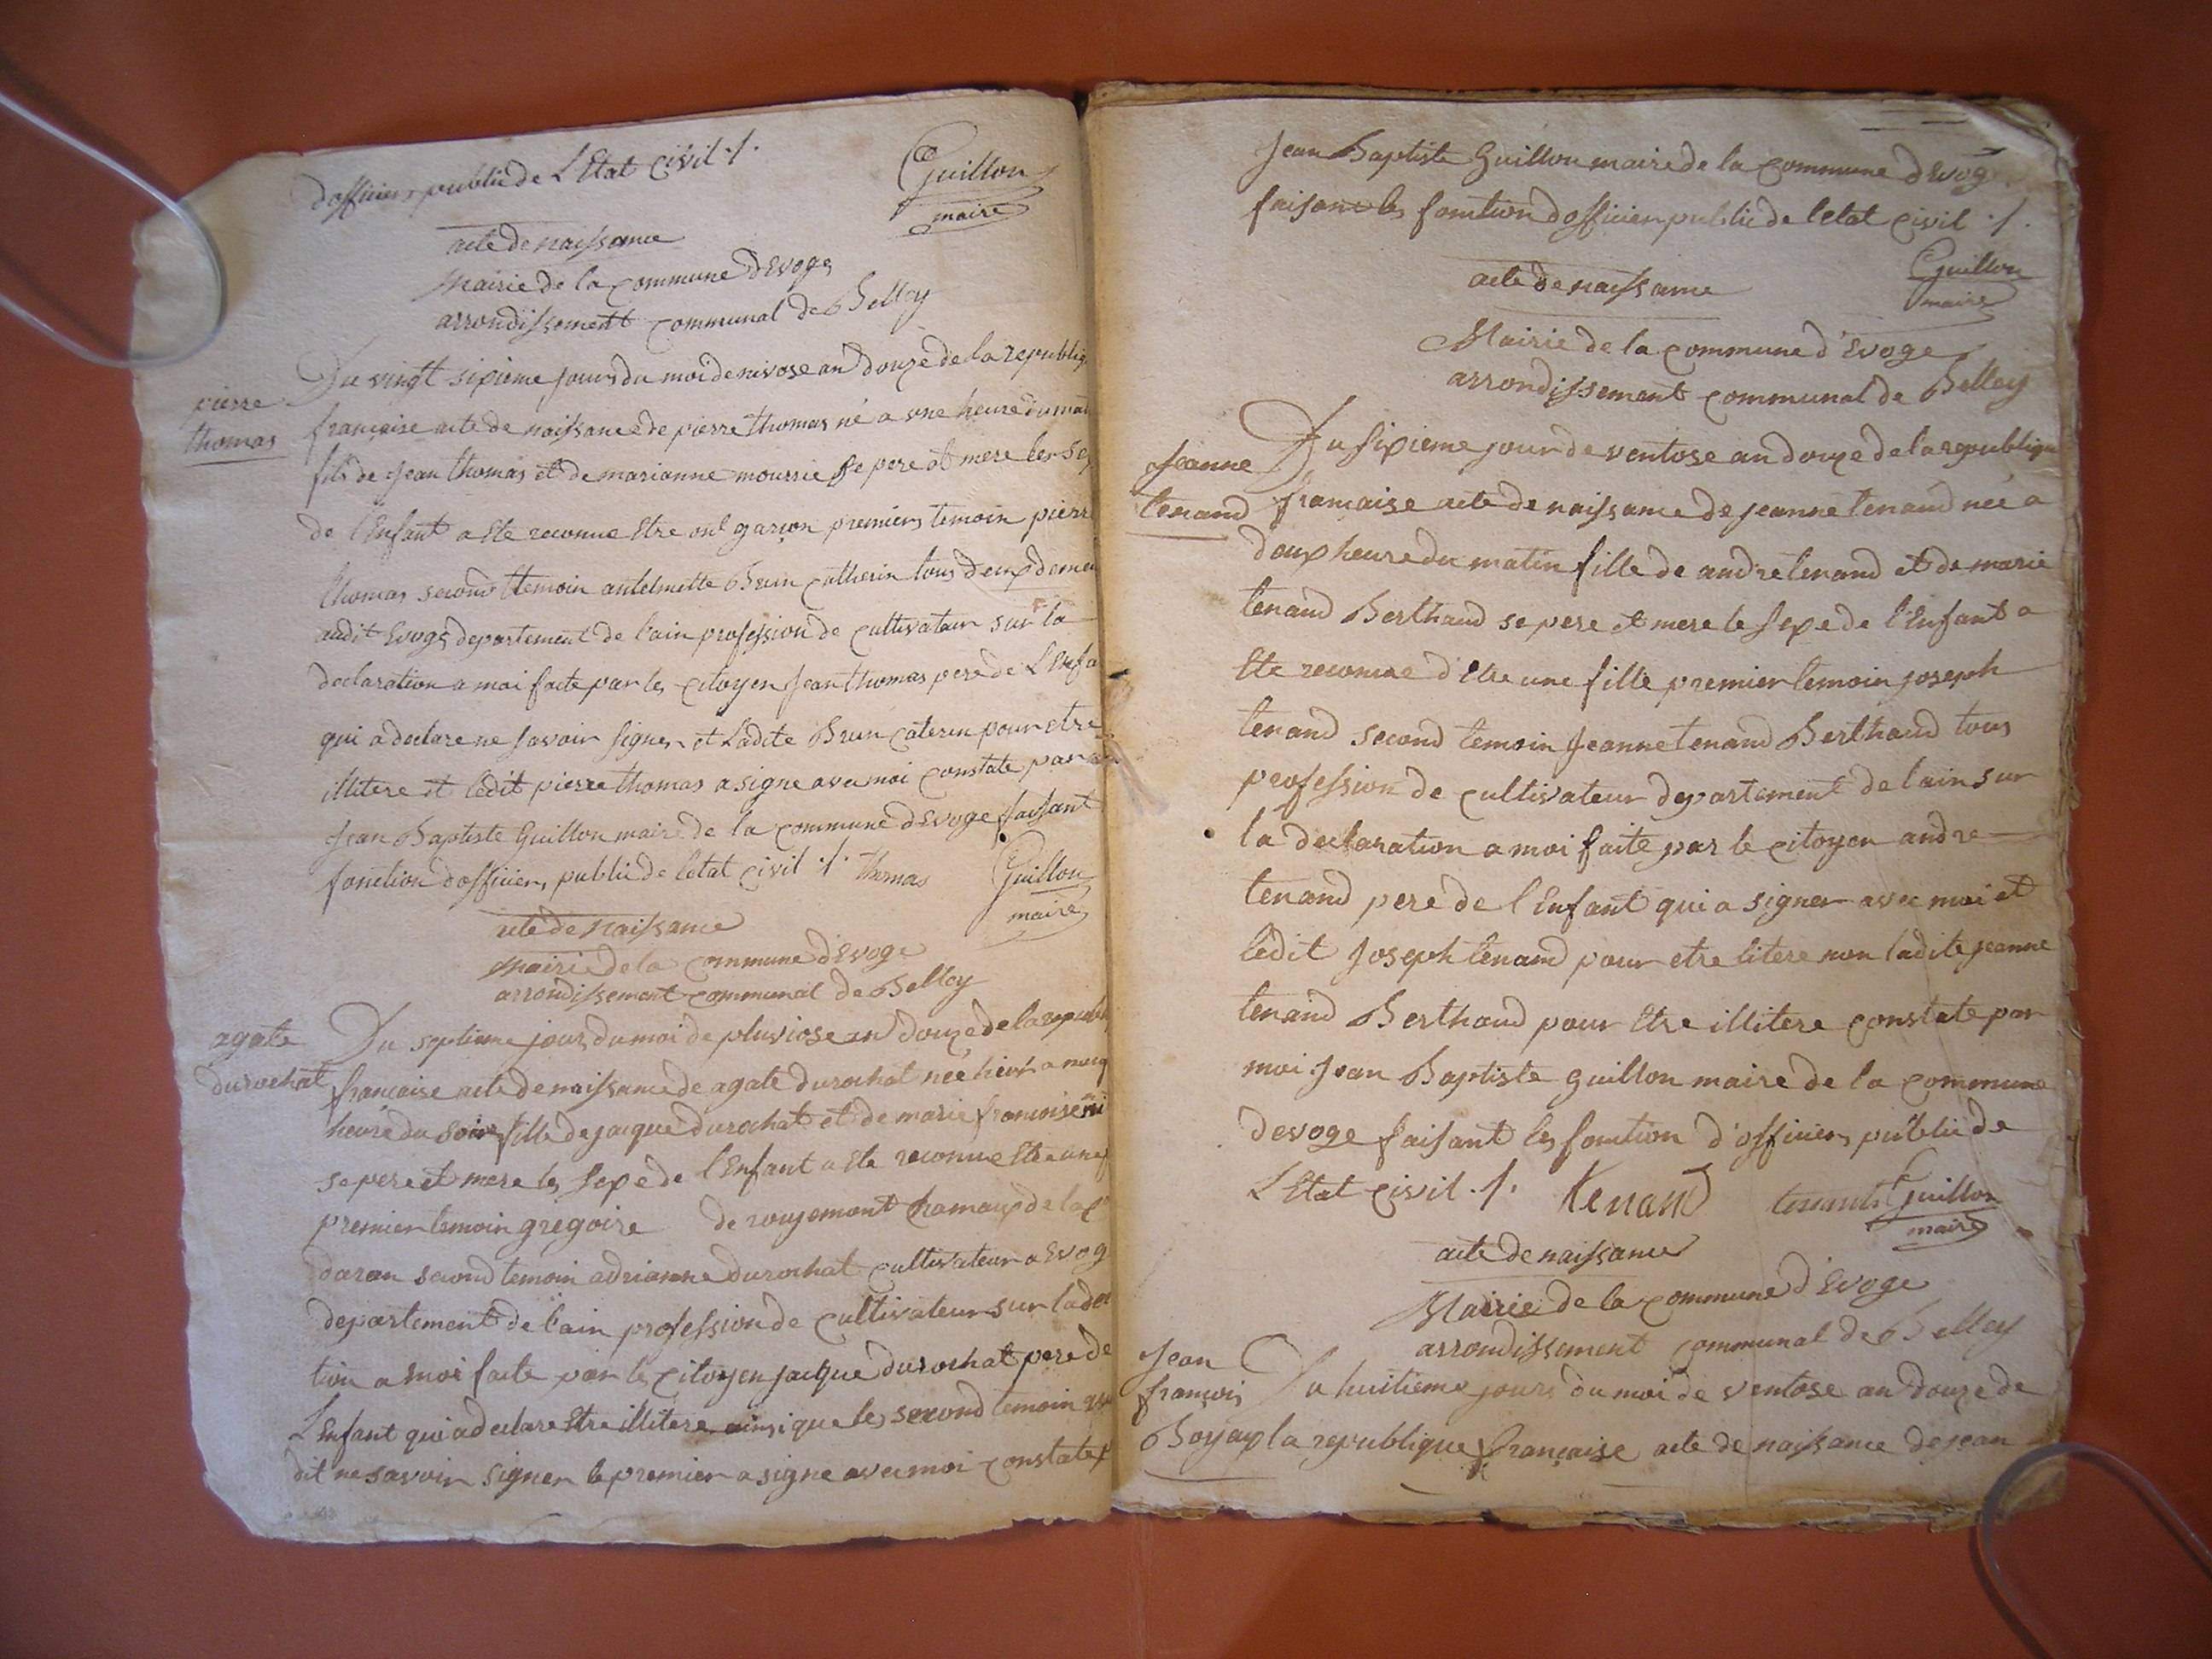 d'officier public de L'Etat Civil ./.
Guillon
maire
acte de naissance
Mairie de la commune d'Evoges
arrondissement communal de Belley
pierre
thomas
Du vingt sixieme jours du moi de nivose an douze de la republiq
francaise acte de naissance de pierre thomas né a une heure du mat
fils de Jean thomas et de marianne mourrie se pere et mere le sex
de l'Enfant a Ete reconnue Etre un garçon premiers temoin pierre
thomas second temoin antelmette Brun catherin tous deux demeu
audit Evoges departement de l'ain profession de cultivateur sur la
declaration a moi faite par les citoyen Jean thomas pere de L'Enfa
qui a declare ne savoir signer et Ladite Brun caterin pour etre
illitere et ledit pierre thomas a signe avec moi constate par
Jean Baptiste Guillon maire de la commune d'Evoge faisant
fonction d'officiers public de letat civil ./. thomas
Guillon
maire
acte de Naissance
Mairie de la commune d'Evoge
arrondissement communal de Belley
agate
durochat
Du septieme jours du moi de pluviose an douze de la republi
francaise acte de naissance de agate durochat née hier a
heure du soir fille de jacque durochat et de marie francoise
se pere et mere les sexe de l'Enfant a Ete reconnue Etre une
premier temoin gregoire de rougemont
second temoin adrianne durochat cultivateur a Evog
departement de l'ain profession de cultivateur sur la de
tion a moi faite par les citoyen jacque durochat pere de
L'Enfant qui a declare Etre illitere ainsi que les second temoin
dit ne savoir signer le premier a signe avec moi constate p
Jean Baptiste Guillon maire de la commune d'Evoge
faisant les fonction d'officier public de letat civil ./.
Guillon
maire
acte de naissance
Mairie de la commune d'Evoge
arrondissement communal de Belley
Jeanne
tenand
Du sixieme jour de ventose an douze de la republique
francaise acte de naissance de jeanne tenand née a
deux heure du matin fille de andre tenand et de marie
tenand Berthaud se pere et mere le sexe de l'Enfant a
Ete reconnue d'Etre une fille premier temoin joseph
tenand second temoin Jeanne tenand Berthaud tous
profession de cultivateur departement de l'ain sur
la declaration a moi faite par le citoyen andre
tenand pere de l'Enfant qui a signer avec moi et
ledit Joseph tenand pour etre litere non ladite jeanne
tenand Berthaud pour Etre illitere constate par
moi Jean Baptiste Guillon maire de la commune
devoge faisant les fonction d'officiers public de
L'Etat civil ./. tenand
Guillon
maire
acte de naissance
Mairie de la commune d'Evoge
arrondissement communal de Belley
Jean
françois
Boyax
Du huitieme jours du moi de ventose an douze de
la republique française acte de naissance de jean